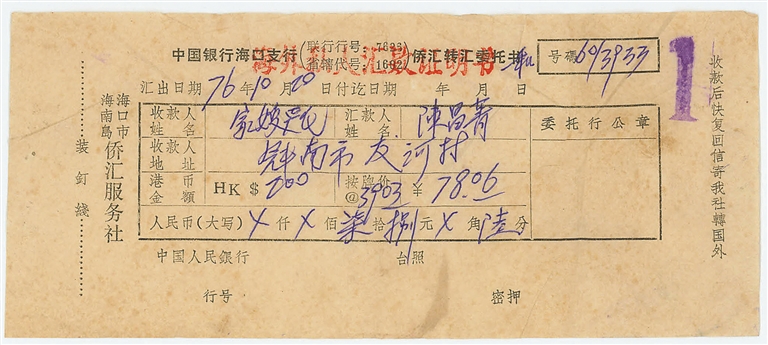 中国银行海口支行(联行行号:7623 省辖代号:1602)侨汇转汇委托书
海外到支汇款证明书
号碼 60/3933
汇出日期 76年10月20日付讫日期 年 月 日
收款人姓名 汇款人姓名 陳昌菁
委托行公章
收款人地址 南市友河村
港币金額 HK $ 200 按牌价@ 3903 ¥ 78.06
人民币(大写) X仟X佰柒拾捌元X角陆分
中国人民銀行 台照
行号 密押
海口市
海南島 侨汇服务社
装釘綫
收款后快复回信寄我社轉国外
1